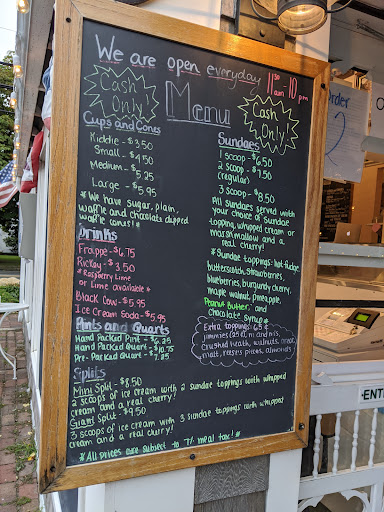 We are open everyday 11:30 am - 10 pm
Cash Only!
Menu
Cash Only!
Cups and Cones
Kiddie - $3.50
Small - $4.50
Medium - $5.25
Large - $5.95
*We have sugar, plain,
waffle and chocolate dipped
waffle cones!*
Drinks
Frappe - $6.75
Rickey - $3.50
*Raspberry Lime
or Lime available*
Black Cow - $5.95
Ice Cream Soda - $5.95
Pints and Quarts
Hand Packed Pint - $6.25
Hand Packed Quart - $10.75
Pre-Packed Quart - $7.25
Splits
Mini Split - $8.50
2 scoops of ice cream with 2 sundae toppings with whipped
cream and a real cherry!
Giant Split - $9.50
3 scoops of ice cream with 3 sundae toppings with whipped
cream and a real cherry!
*All prices are subject to 7% meal tax!*
Sundaes
1 scoop - $6.50
2 scoop - $7.50
(regular)
3 scoop - $8.50
All sundaes served with
your choice of sundae
topping, whipped cream or
marshmallow and a
real cherry!
*Sundae toppings: hot fudge,
butterscotch, strawberries,
blueberries, burgundy cherry,
maple walnut, pineapple,
Peanut butter, and
chocolate syrup*
Extra toppings: 65¢
jimmies (25¢), m and m's,
crushed heath, walnuts, oreo,
malt, reese's pieces, almonds
Order
ENT